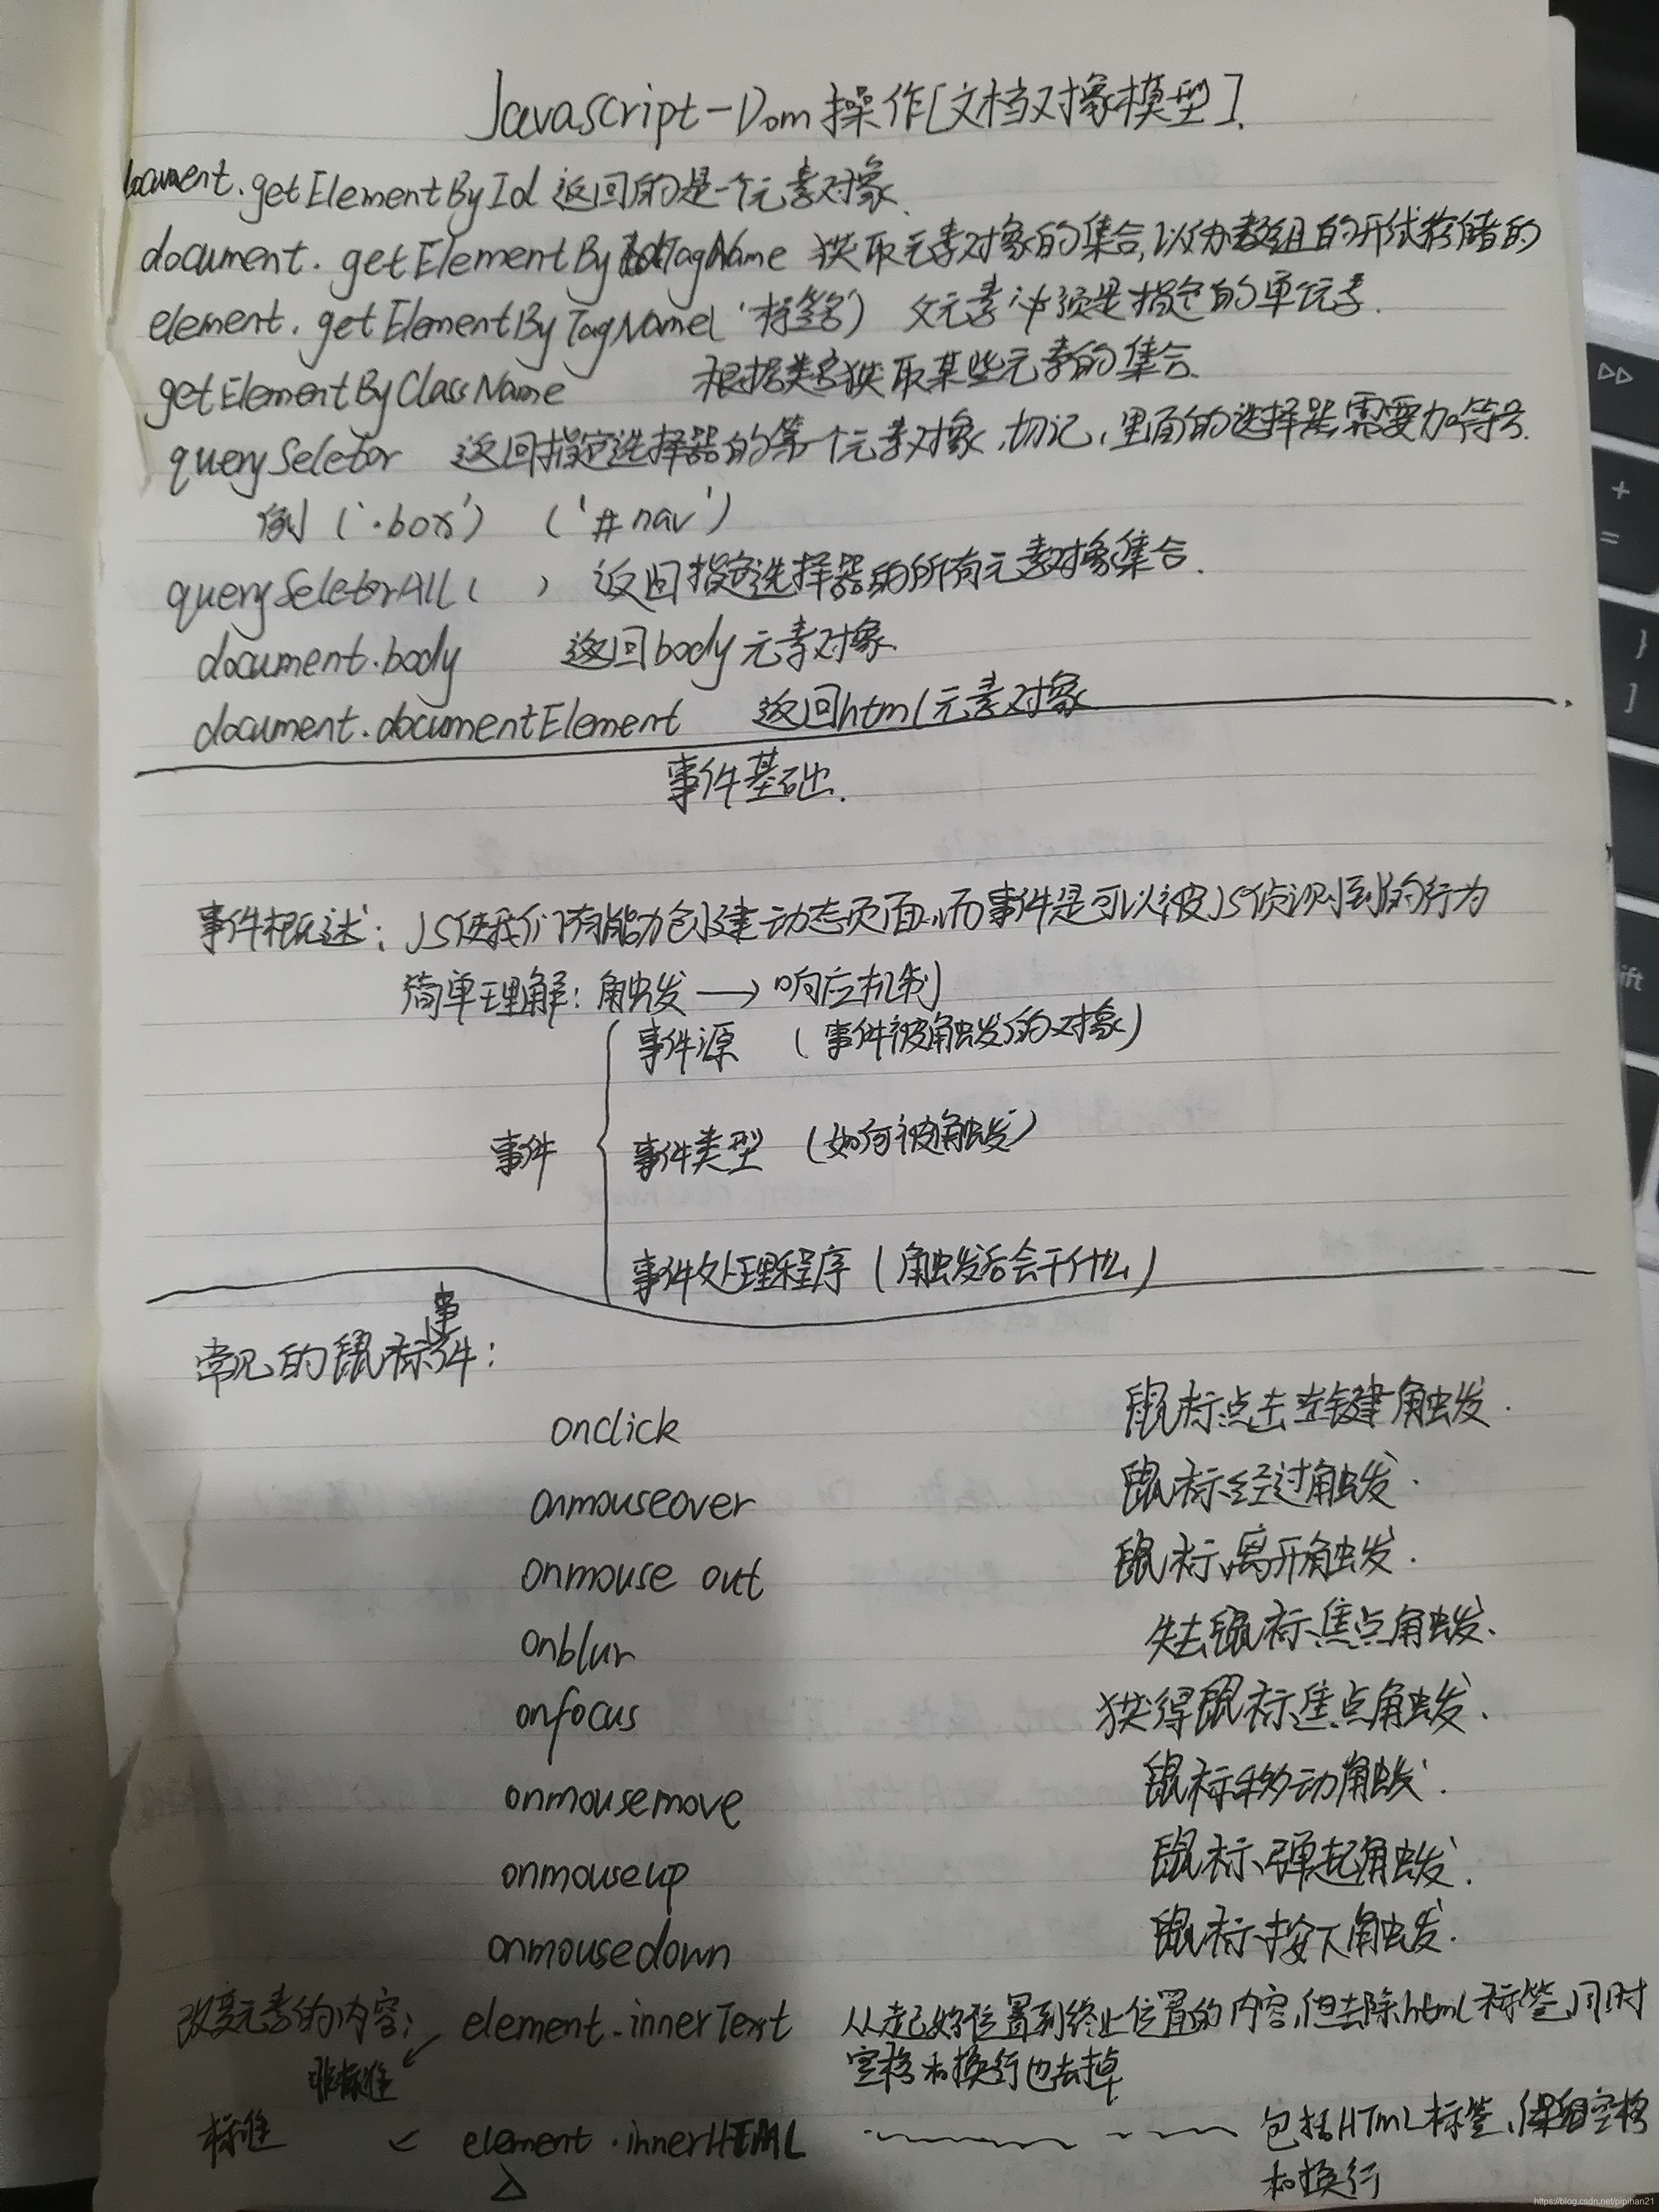 Javascript-Dom操作[文档对象模型].
document.getElementById 返回的是一个元素对象.
document.getElementByTagName 获取元素对象的集合,以伪数组的形式存储的
element.getElementByTagName('标签名') 父元素必须是指定的单元素.
getElementByClassName 根据类名获取某些元素的集合.
querySeletor 返回指定选择器的第一个元素对象,切记,里面的选择器需要加符号.
例('.box') ('#nav')
querySeletorAll( ) 返回指定选择器的所有元素对象集合.
document.body 返回body元素对象.
document.documentElement 返回html元素对象
事件基础.
事件概述: JS使我们有能力创建动态页面,而事件是可以被JS侦测到的行为
简单理解: 触发 → 响应机制
事件源 (事件被触发的对象)
事件 事件类型 (如何被触发)
事件处理程序 (触发后会干什么)
常见的鼠标事件:
onclick 鼠标点击左键触发.
onmouseover 鼠标经过触发.
onmouse out 鼠标离开触发.
onblur 失去鼠标焦点触发.
onfocus 获得鼠标焦点触发.
onmousemove 鼠标移动触发.
onmouseup 鼠标弹起触发.
onmousedown 鼠标按下触发.
改变元素的内容: element.innerText 从起始位置到终止位置的内容,但去除html标签,同时
非标准 空格和换行也去掉
标准 element.innerHTML 包括HTML标签,保留空格
和换行
▷▷
+
=
}
]
ift
https://blog.csdn.net/pipihan21